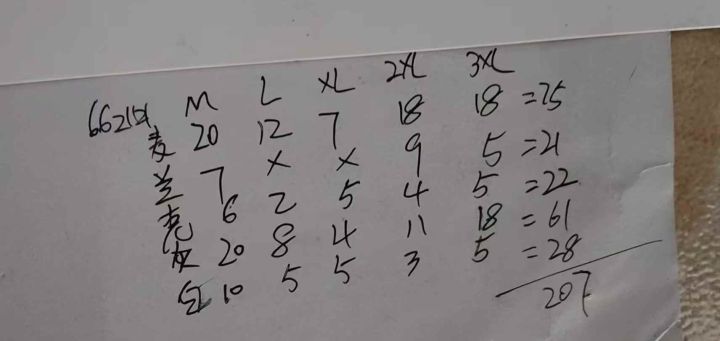 M L XL 2XL 3XL
20 12 7 18 18 =75
兰 7 × × 9 5 =21
6 2 5 4 5 =22
灰 20 8 4 11 18 =61
白 10 5 5 3 5 =28
207